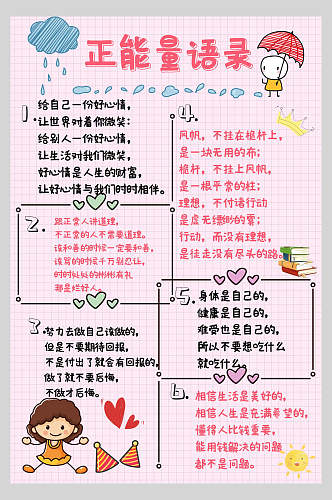 正能量语录
1
给自己一份好心情,
让世界对着你微笑:
给别人一份好心情,
让生活对我们微笑,
好心情是人生的财富,
让好心情与我们时时相伴。
2.
跟正常人讲道理,
不正常的人不需要道理。
该和善的时候一定要和善,
该骂的时候千万别忍让,
时时处处的彬彬有礼
那是烂好人。
3.
努力去做自己该做的,
但是不要期待回报,
不是付出了就会有回报的,
做了就不要后悔,
不做才后悔。
4.
风帆,不挂在桅杆上,
是一块无用的布;
桅杆,不挂上风帆,
是一根平常的柱;
理想,不付诸行动
是虚无缥缈的雾;
行动,而没有理想,
是徒走没有尽头的路。
5.
身体是自己的,
健康是自己的,
难受也是自己的,
所以不要想吃什么
就吃什么。
6.
相信生活是美好的,
相信人生是充满希望的,
懂得人比钱重要,
能用钱解决的问题
都不是问题。